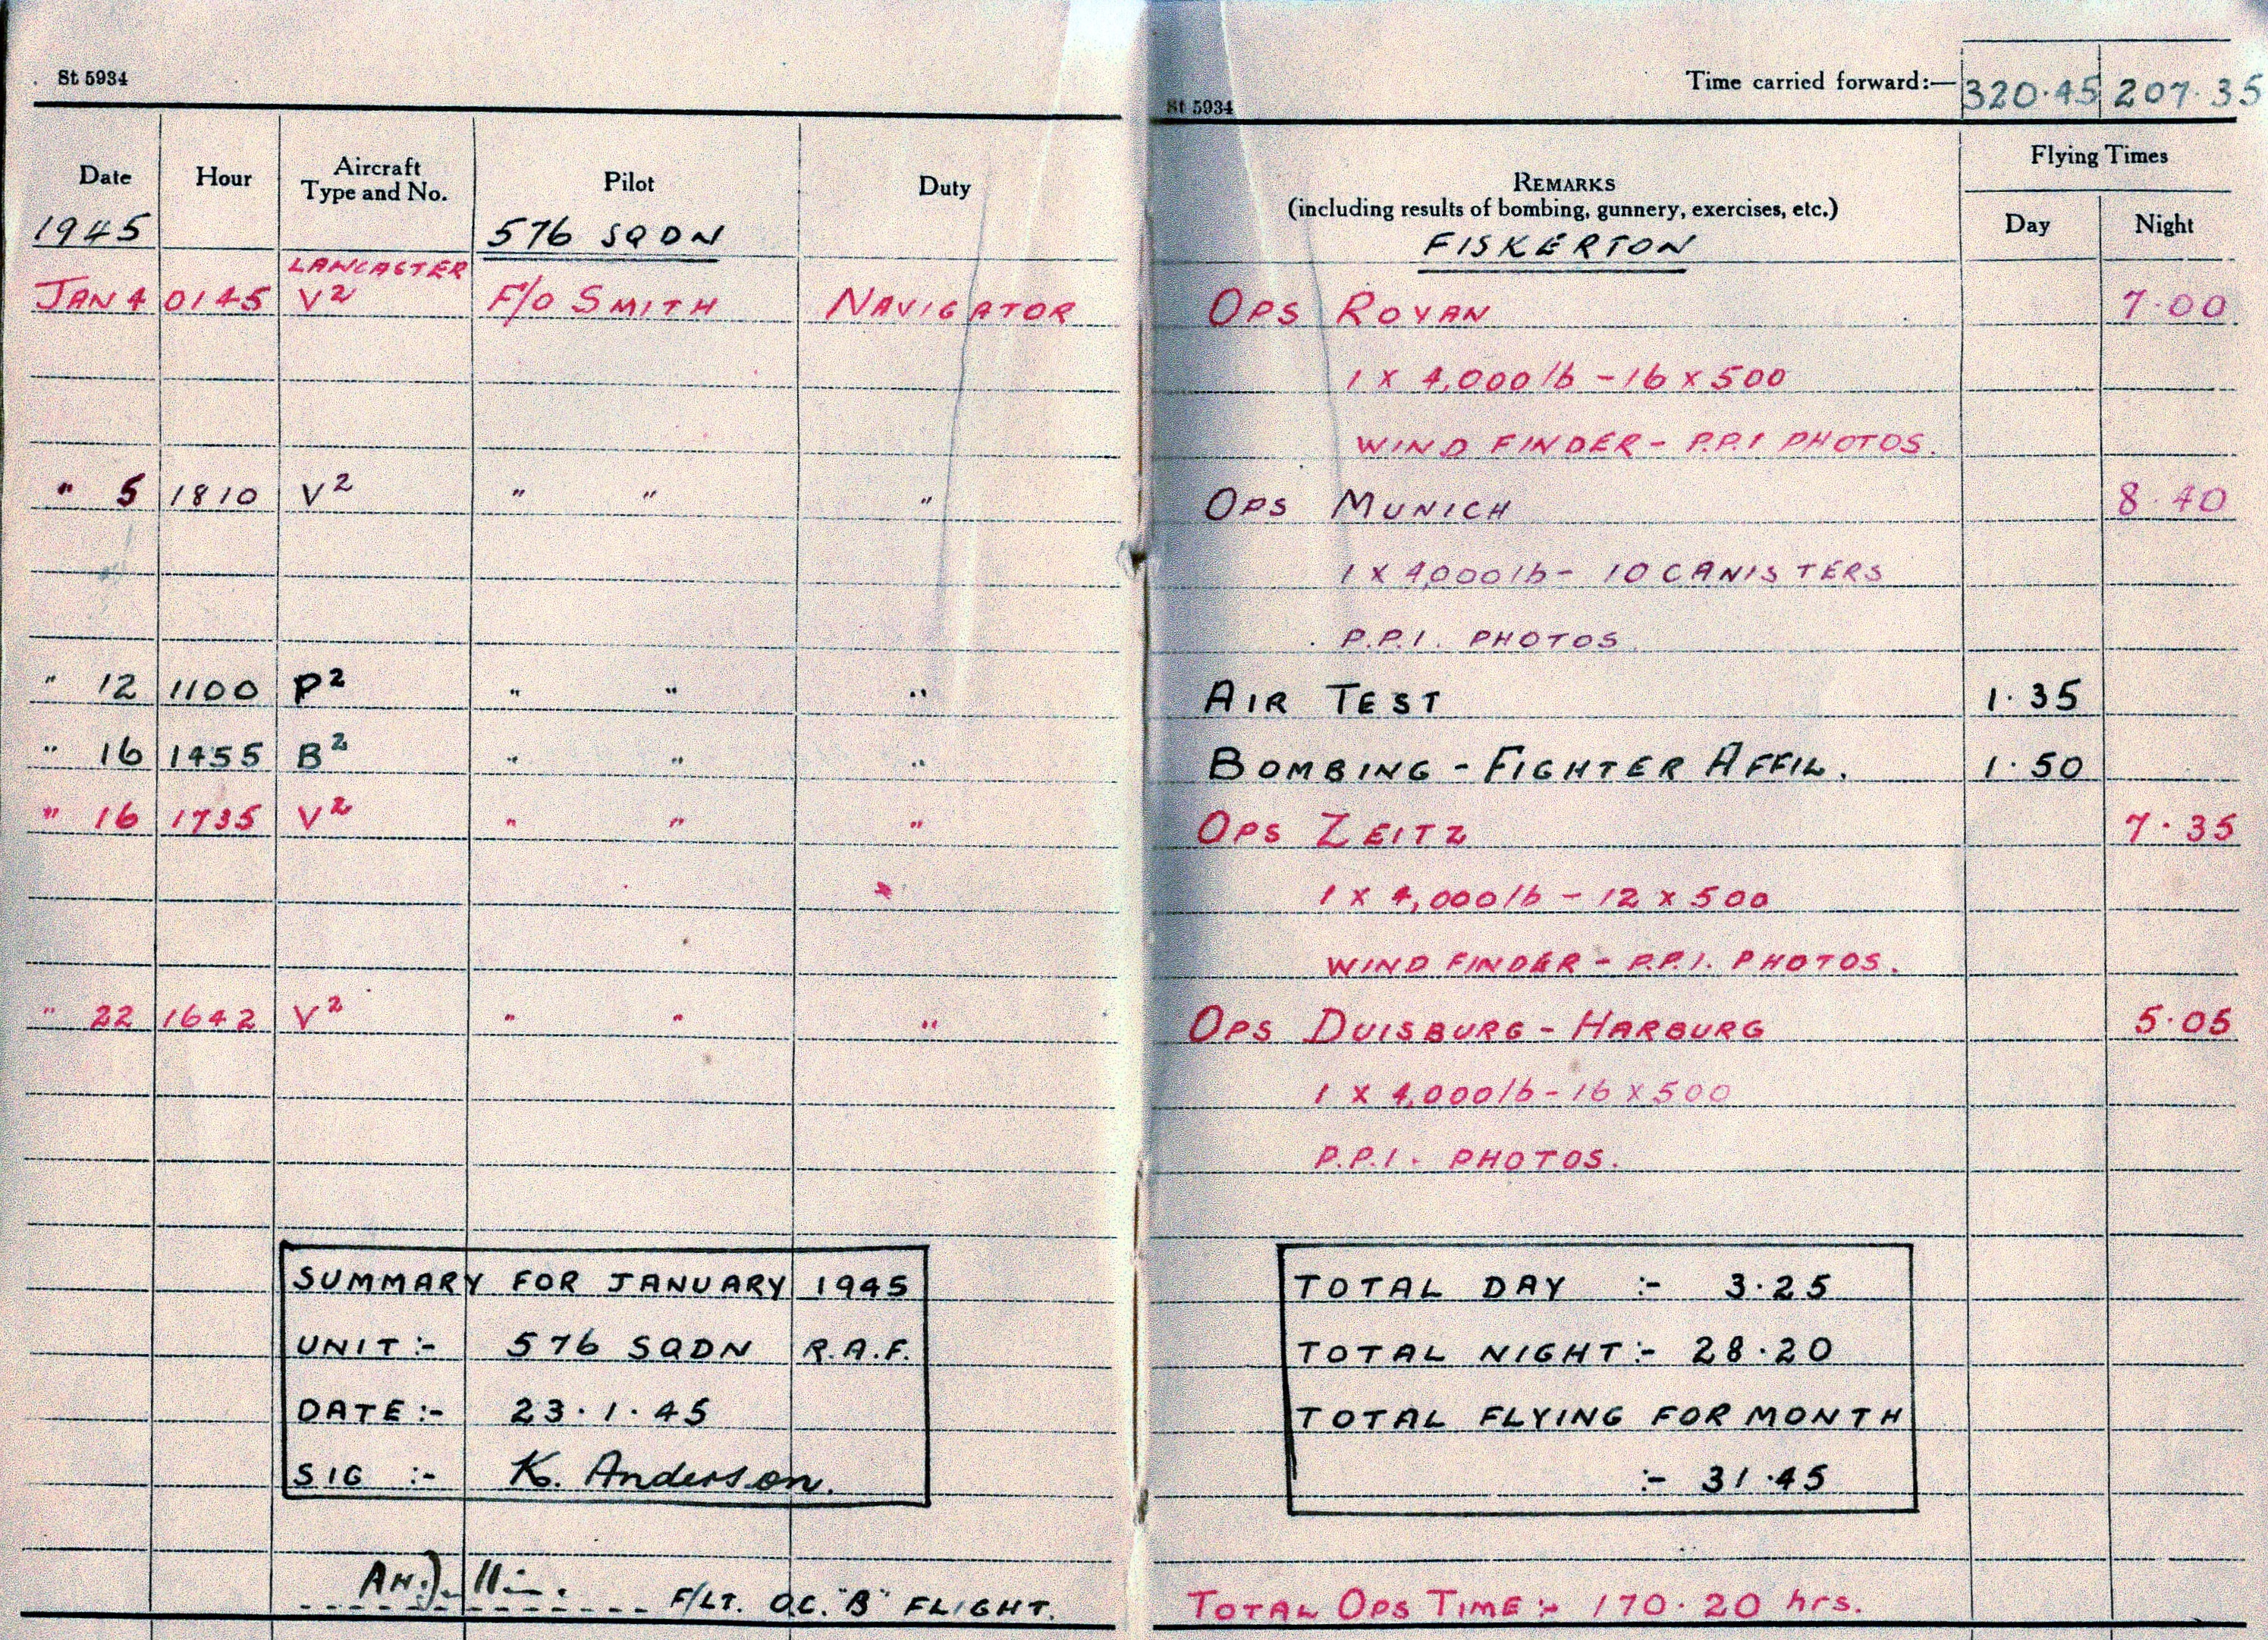 St 5934
Time carried forward:— 320·45 207·35
St 5934
Date Hour Aircraft Type and No. Pilot Duty REMARKS (including results of bombing, gunnery, exercises, etc.) Flying Times
Day Night
1945 576 SQDN FISKERTON
LANCASTER
JAN 4 0145 V2 F/O SMITH NAVIGATOR OPS ROYAN 7·00
1 X 4,000 lb - 16 x 500
WIND FINDER - P.P.I PHOTOS.
" 5 1810 V2 " " " OPS MUNICH 8·40
1 X 4,000 lb - 10 CANISTERS
P.P.I. PHOTOS
" 12 1100 P2 " " " AIR TEST 1·35
" 16 1455 B2 " " " BOMBING - FIGHTER AFFIL. 1·50
" 16 1735 V2 " " " OPS ZEITZ 7·35
1 x 4,000 lb - 12 x 500
WIND FINDER - P.P.I. PHOTOS.
" 22 1642 V2 " " " OPS DUISBURG - HARBURG 5·05
1 x 4,000 lb - 16 x 500
P.P.I. PHOTOS.
SUMMARY FOR JANUARY 1945
UNIT :- 576 SQDN R.A.F.
DATE :- 23·1·45
SIG :- K. Anderson.
TOTAL DAY :- 3·25
TOTAL NIGHT :- 28·20
TOTAL FLYING FOR MONTH
:- 31·45
F/LT. O.C. "B" FLIGHT.
TOTAL OPS TIME :- 170·20 hrs.